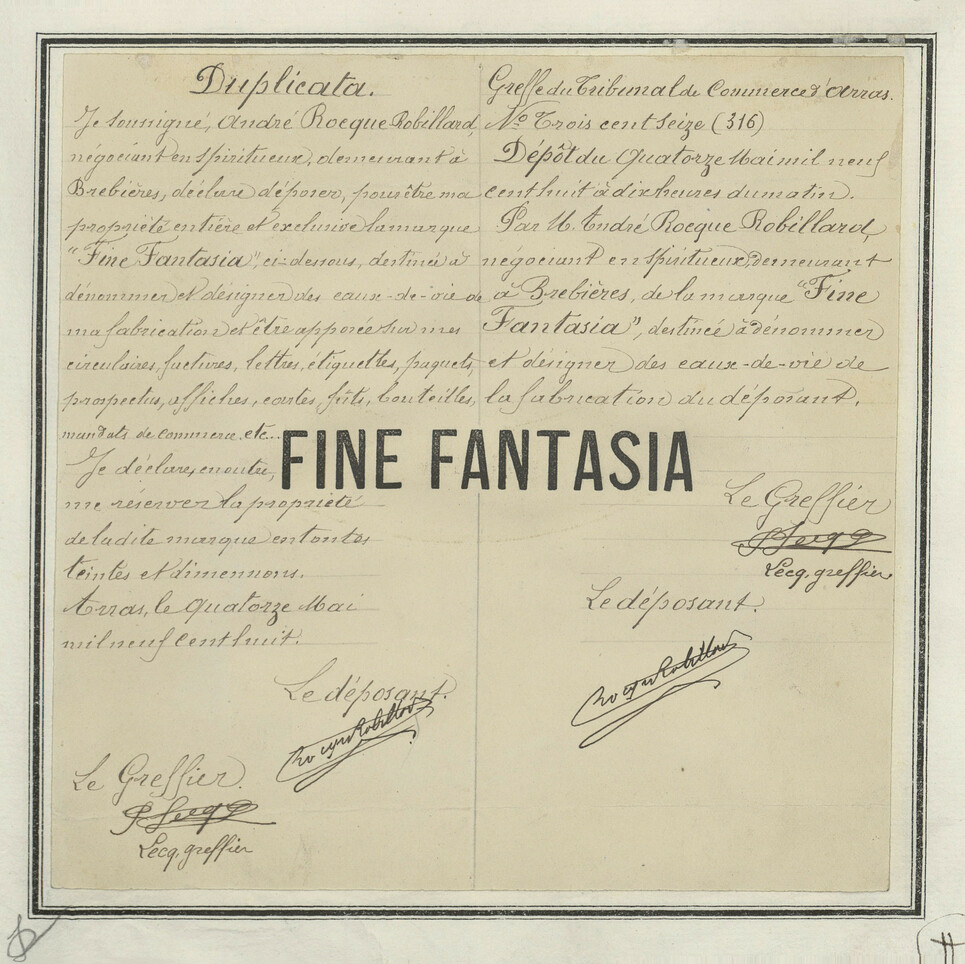 Duplicata.
Je soussigné, André Rocque-Robillard,
négociant en spiritueux, demeurant à
Brebières, déclare déposer, pour être ma
propriété entière et exclusive la marque
"Fine Fantasia", ci-dessous, destinée à
dénommer et désigner des eaux-de-vie de
ma fabrication et être apposée sur mes
circulaires, factures, lettres, étiquettes, paquets,
prospectus, affiches, cartes, fûts, bouteilles,
mandats de commerce, etc...
Je déclare, en outre,
me réserver la propriété
de ladite marque en toutes
teintes et dimensions.
Arras, le Quatorze Mai
mil neuf cent huit.
Le déposant.
Rocque Robillard
Le Greffier.
Lecq
Lecq, greffier
FINE FANTASIA
Greffe du Tribunal de Commerce d'Arras.
No Trois cent seize (316)
Dépôt du Quatorze Mai mil neuf
cent huit à dix heures du matin.
Par M. André Rocque Robillard,
négociant en spiritueux, demeurant
à Brebières, de la marque "Fine
Fantasia", destinée à dénommer
et désigner des eaux-de-vie de
la fabrication du déposant.
Le Greffier
Lecq
Lecq, greffier.
Le déposant.
Rocque Robillard